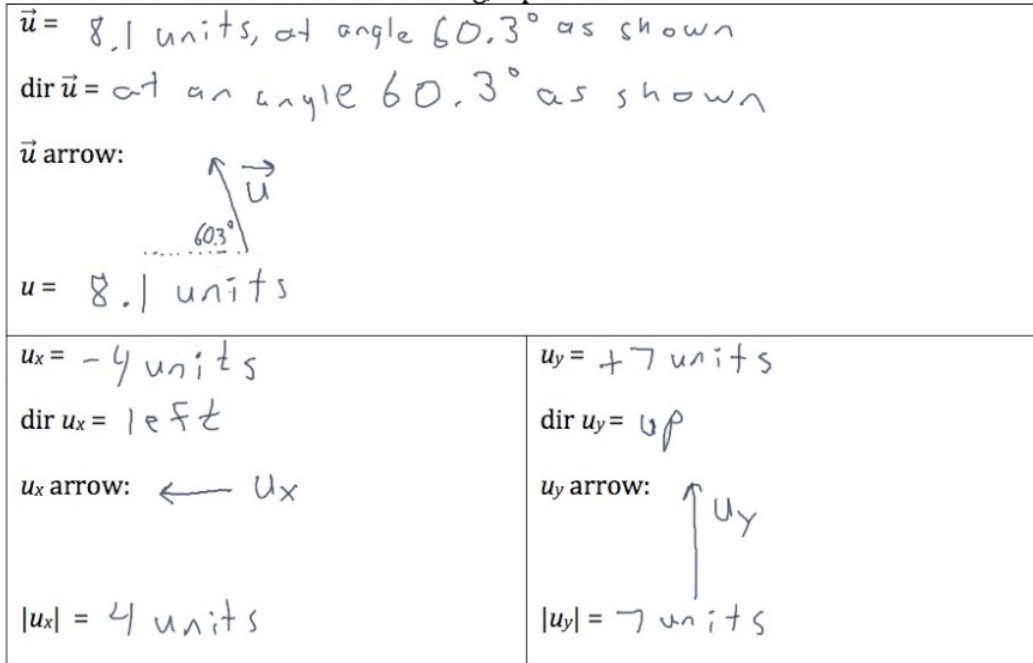 u⃗ = 8.1 units, at angle 60.3° as shown
dir u⃗ = at an angle 60.3° as shown
u⃗ arrow:
u⃗
60.3°
u = 8.1 units
uₓ = -4 units
dir uₓ = left
uₓ arrow: uₓ
|uₓ| = 4 units
uy = +7 units
dir uy = up
uy arrow: uy
|uy| = 7 units